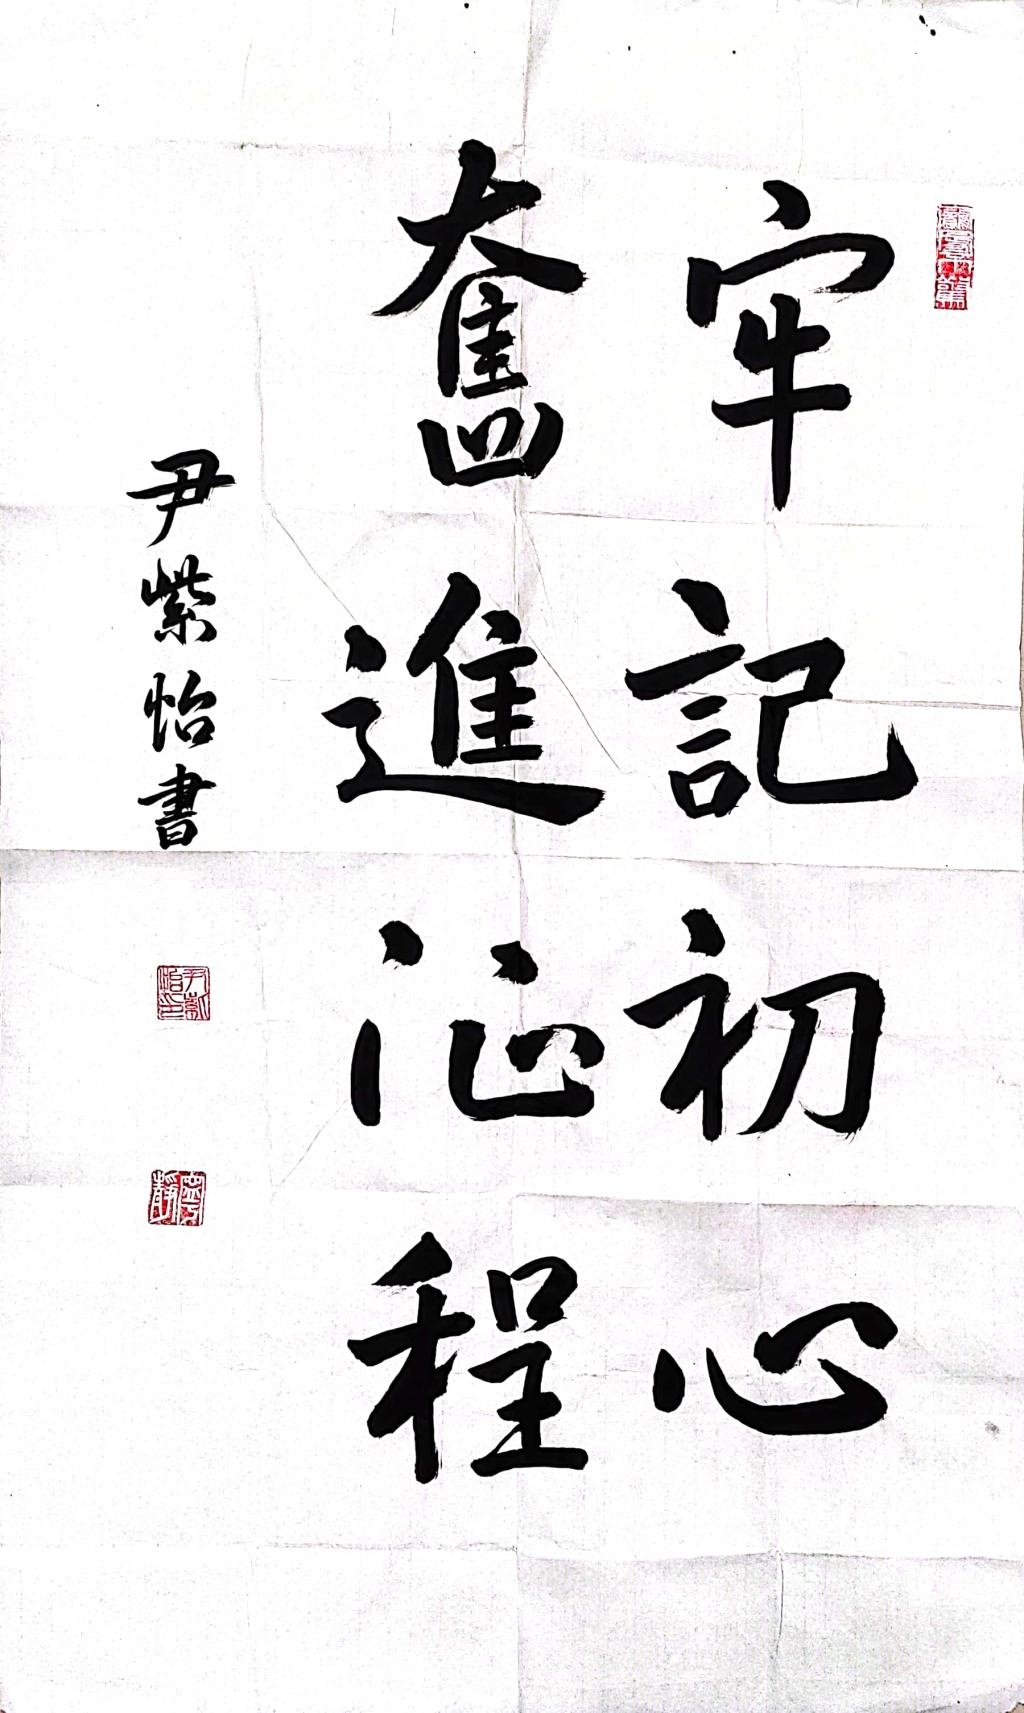 牢記初心
奮進征程
尹紫怡書